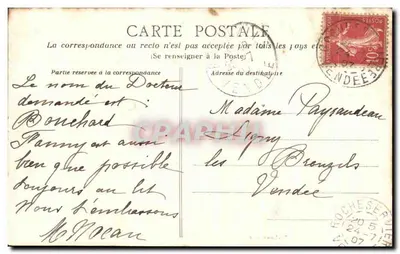 CARTE POSTALE
La correspondance au recto n'est pas acceptée par tous les pays étr
(Se renseigner à la Poste)
Partie réservée à la correspondance
Adresse du destinataire
Le nom du Docteur
demandé est :
Bouchard
Fanny est aussi
bien que possible
toujours au lit
Nous t'embrassons
Madame Paysaudeau
Ligny
les Brouzils
Vendée
VENDEE
ROCHESERVIERE
24-7
07
10